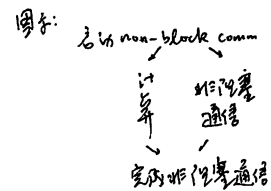 图示:
启动 non-block comm
计算
非阻塞
通信
完成非阻塞通信